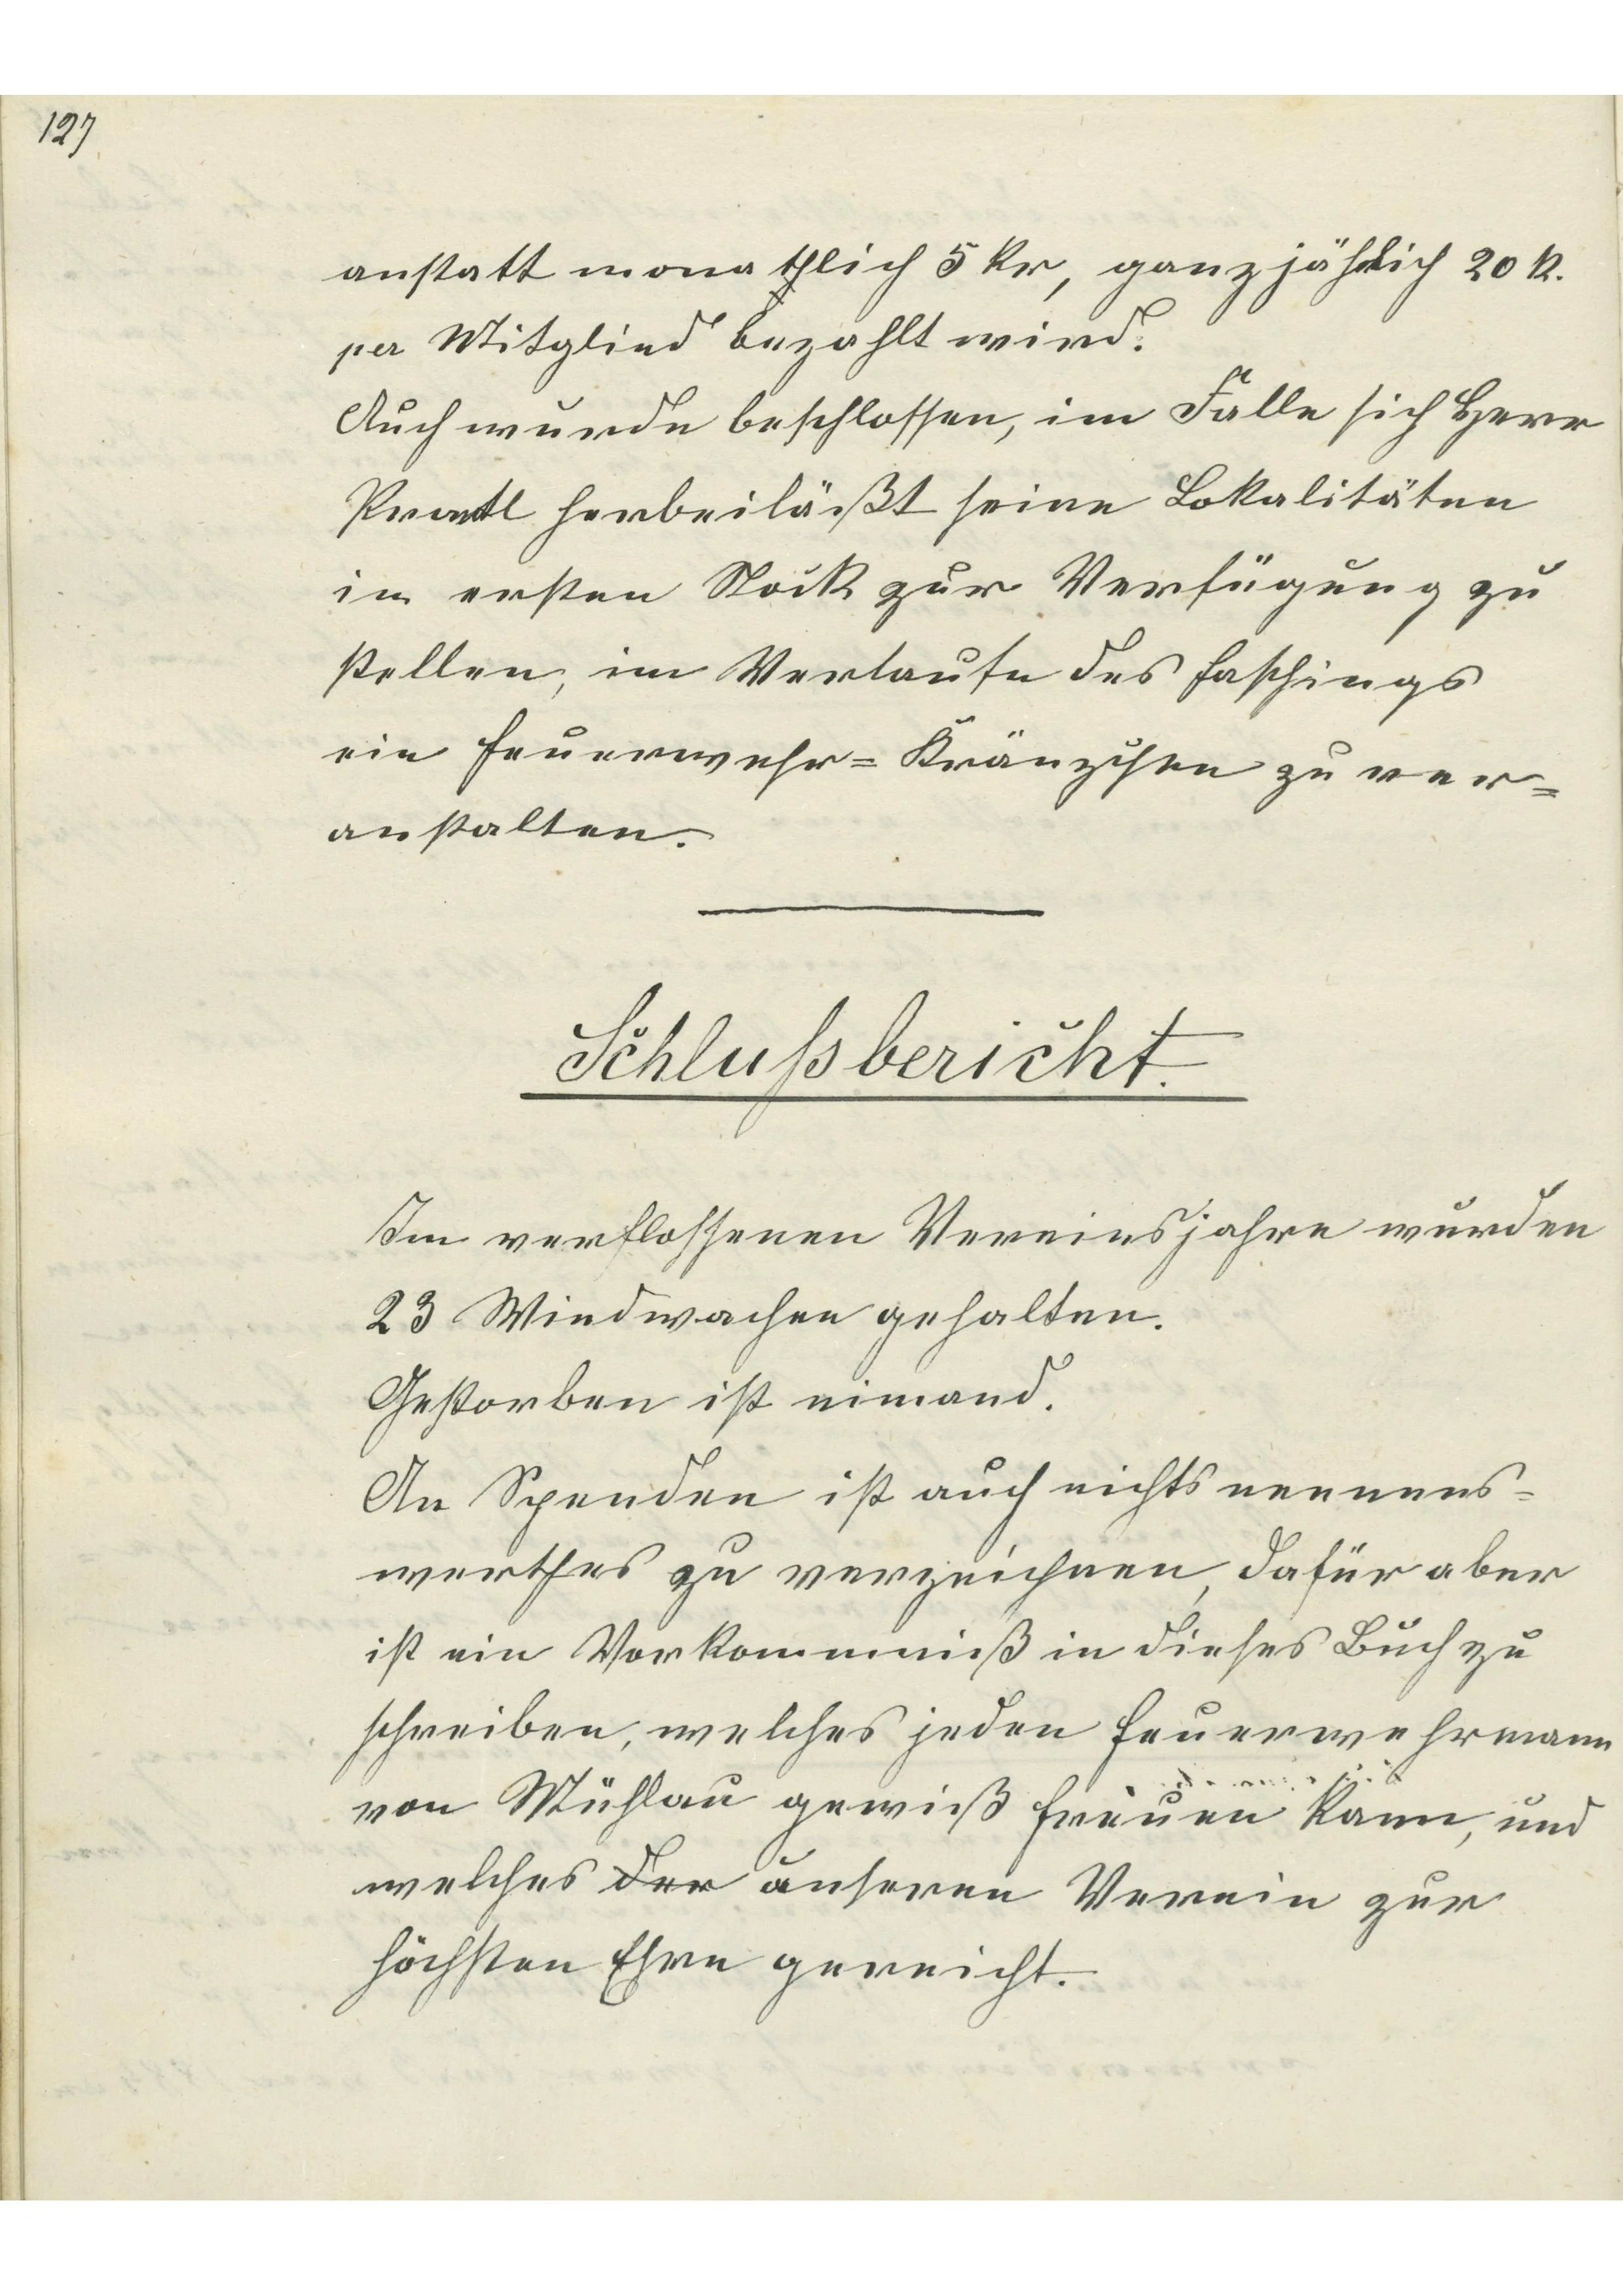 127
anstatt monathlich 5 kr, ganzjährlich 20 k.
per Mitglied bezahlt wird.
Auch wurde beschlossen, im Falle sich Herr
herbeiläßt seine Lokalitäten
im ersten Stock zur Verfügung zu
stellen, im Verlaufe des Faschings
ein Feuerwehr=Kränzchen zu ver=
anstalten.
Schlußbericht.
Im verflossenen Vereinsjahre wurden
23 Windwachen gehalten.
Gestorben ist niemand.
An Spenden ist auch nichts nennens=
werthes zu verzeichnen, dafür aber
ist ein Vorkommniß in dieses Buch zu
schreiben, welches jeden Feuerwehrmann
von Mühlau gewiß freuen kann, und
welches der unseren Verein zur
höchsten Ehre gereicht.